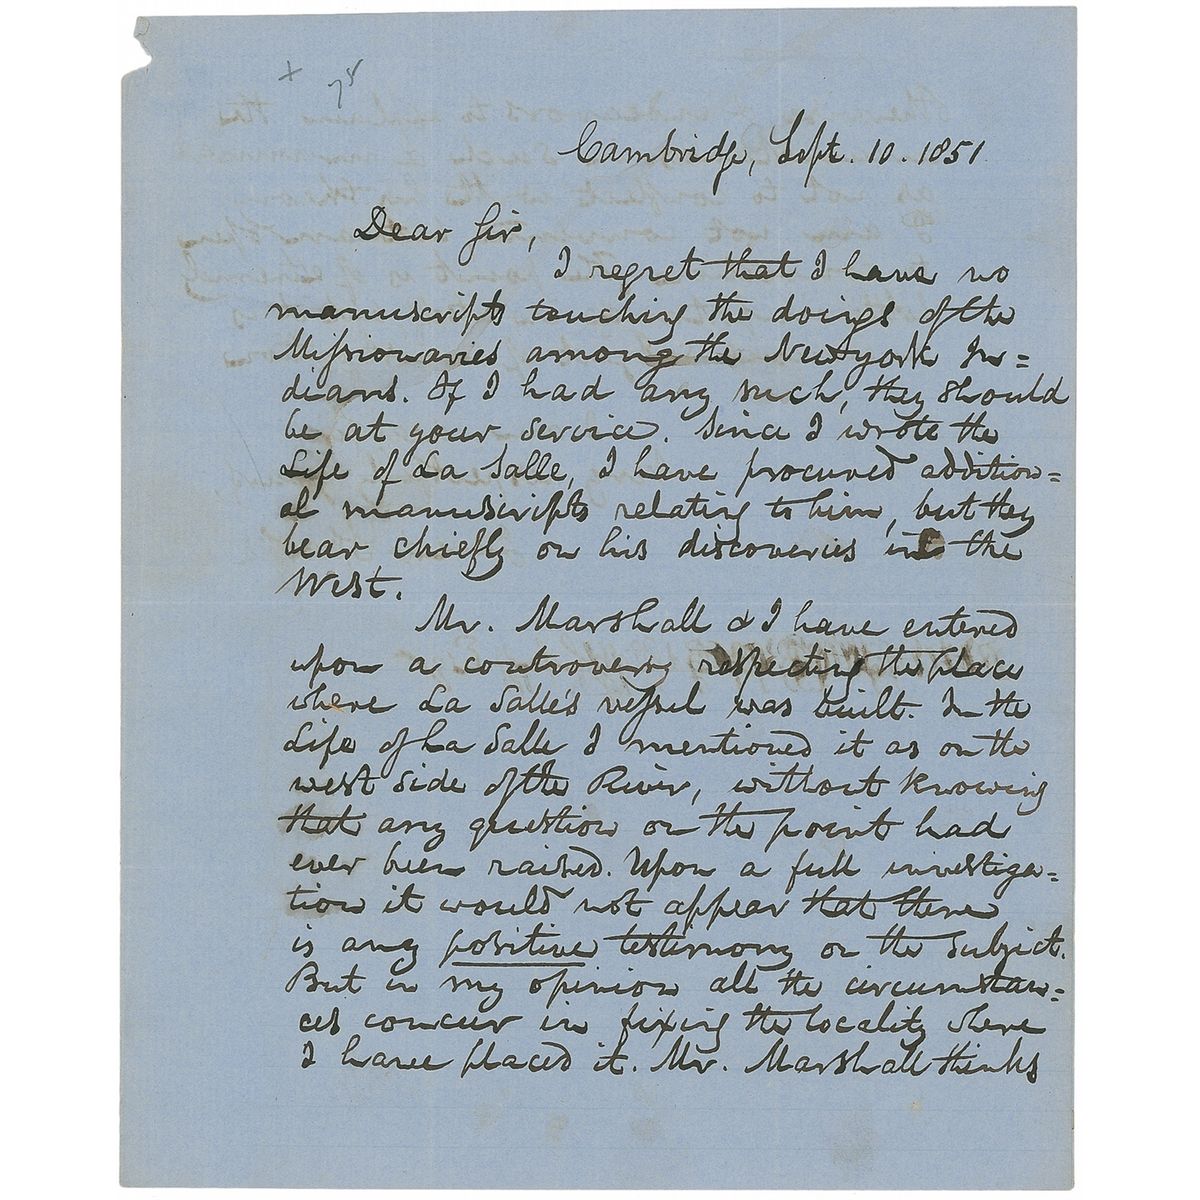 + 78
Cambridge, Sept. 10. 1851.
Dear Sir,
I regret that I have no
manuscripts touching the doings of the
Missionaries among the New York In=
dians. If I had any such, they should
be at your service. Since I wrote the
Life of La Salle, I have procured addition=
al manuscripts relating to him, but they
bear chiefly on his discoveries in the
West.
Mr. Marshall & I have entered
upon a controversy respecting the place
where La Salle's vessel was built. In the
Life of La Salle I mentioned it as on the
west side of the River, without knowing
that any question on the point had
ever been raised. Upon a full investiga=
tion it would not appear that there
is any positive testimony on the subject.
But in my opinion all the circumstan=
ces concur in fixing the locality where
I have placed it. Mr. Marshall thinks